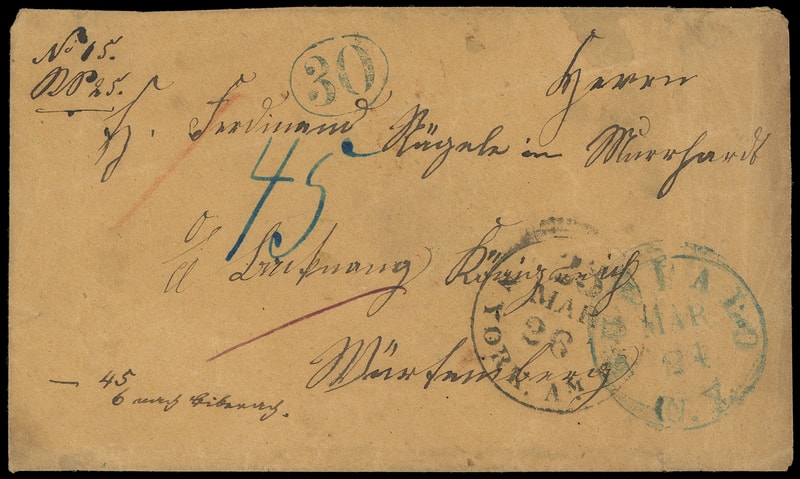 No 15.
25.
30
Herrn
H. Ferdinand Nägele in Murrhardt
45
O/A Backnang Königreich
Würtemberg
YORK AM
MAR
26
BUFFALO
MAR
24
N.Y.
— 45
6 nach Biberach.